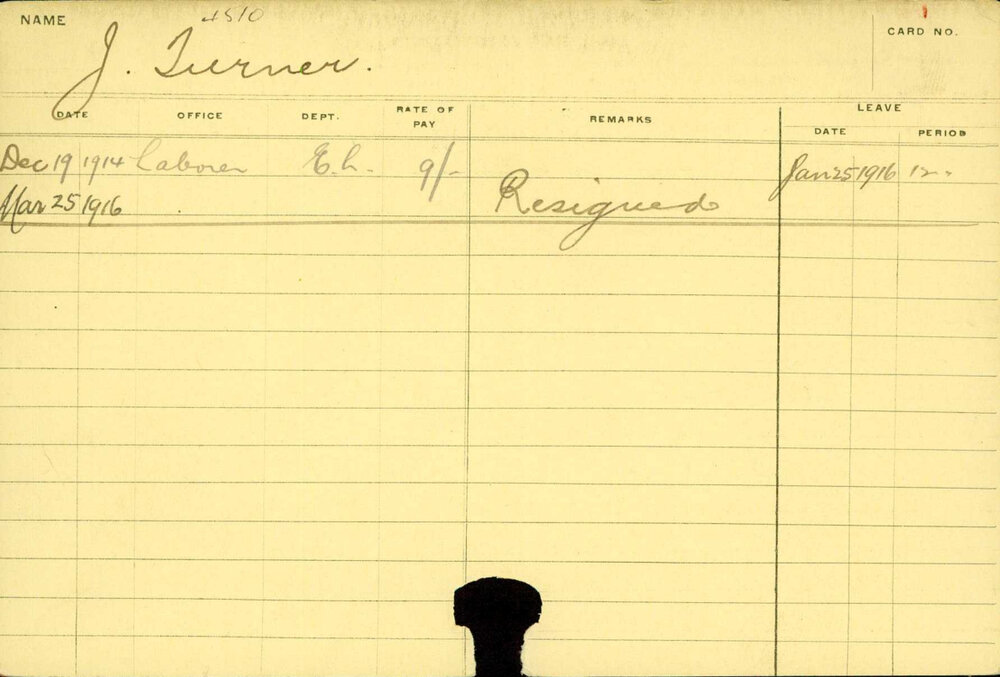 NAME 4510 CARD NO.
J. Turner.
DATE OFFICE DEPT. RATE OF PAY REMARKS LEAVE
DATE PERIOD
Dec 19 1914 Laborer E.L. 9/- Jan 25 1916 12
Mar 25 1916 Resigned